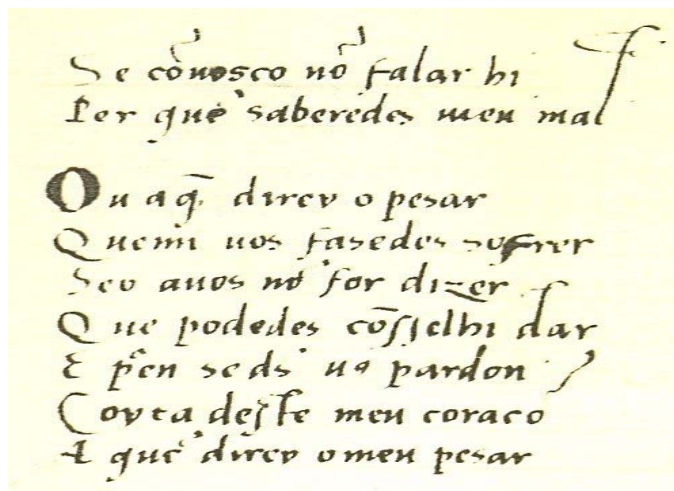 Se cōuosco nō falar hi
Per que saberedes meu mal
Ou a q̄ direy o pesar
Quemi uos fasedes sofrer
Seu auos nō for dizer
Que podedes cōsselhi dar
E pen seds' uꝯ pardon
Coyta deste meu coraço
A que direy o meu pesar